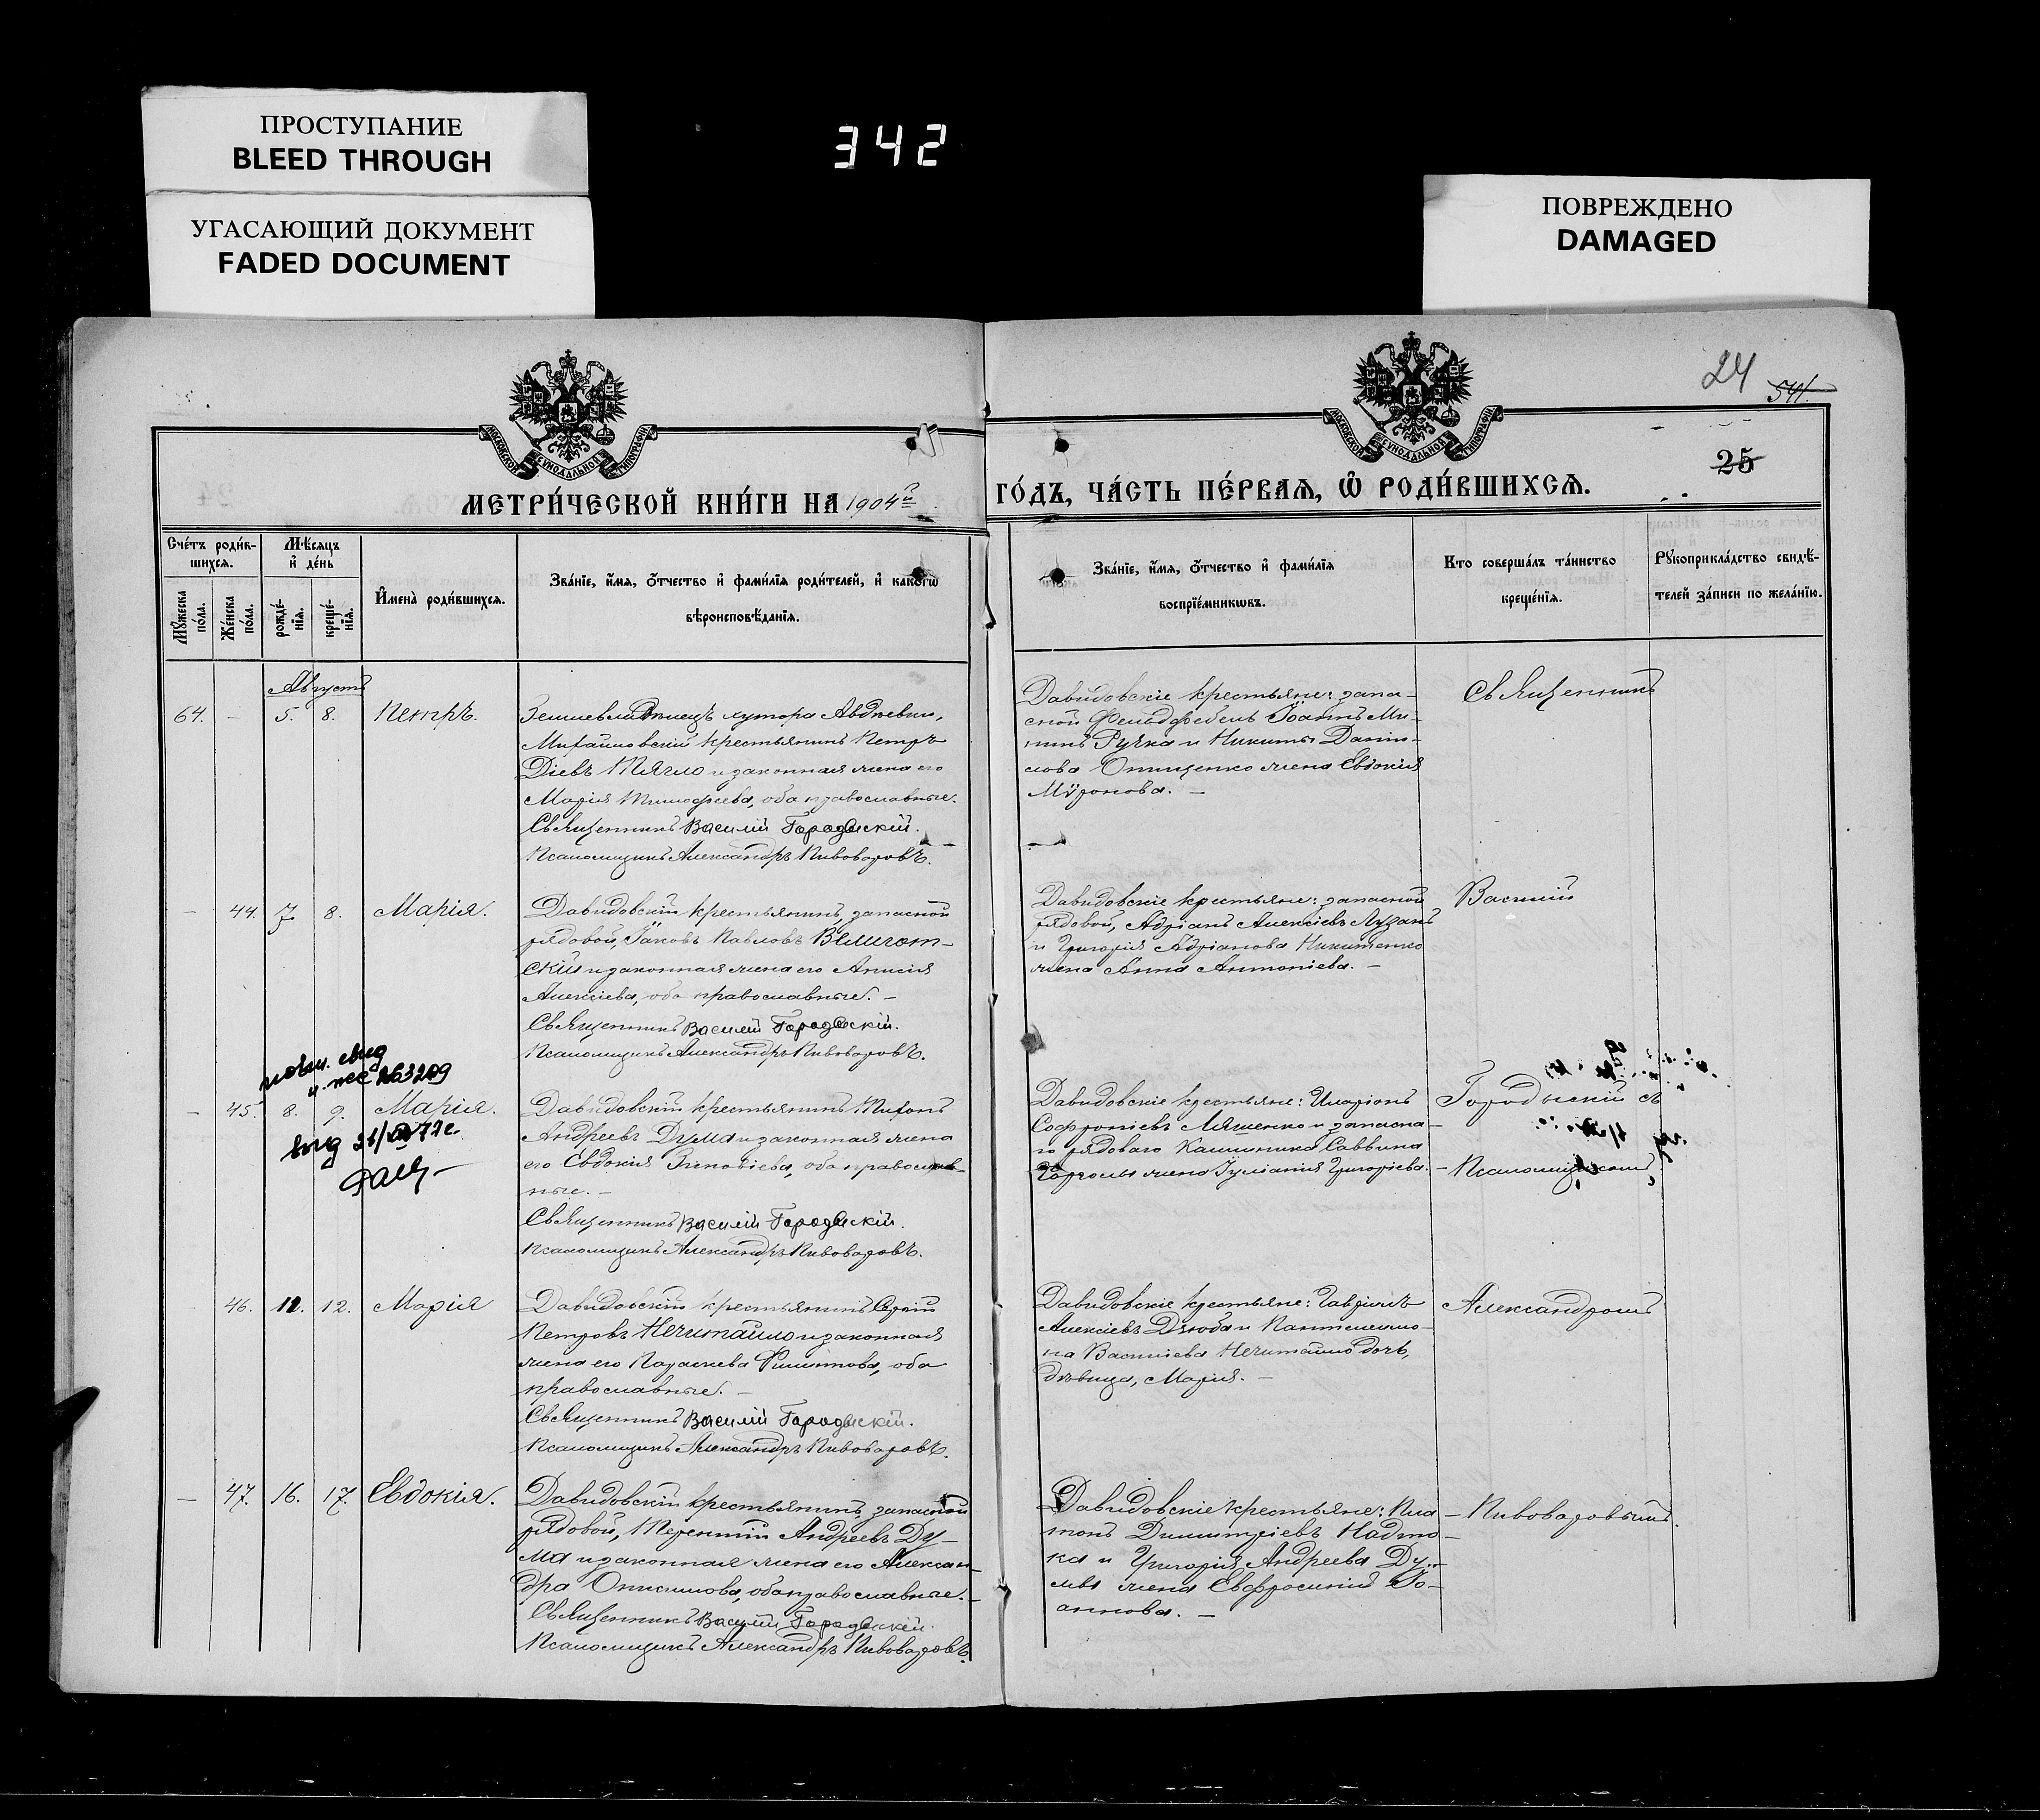 ПРОСТУПАНИЕ
BLEED THROUGH
УГАСАЮЩИЙ ДОКУМЕНТ
FADED DOCUMENT
342
ПОВРЕЖДЕНО
DAMAGED
24
541.
25
МОСКОВСКОЙ СѴНОДАЛЬНОЙ ТИПОГРАФІИ
МОСКОВСКОЙ СѴНОДАЛЬНОЙ ТИПОГРАФІИ
МЕТРИ́ЧЕСКОЙ КНИ́ГИ НА 1904й
ГО́ДЪ, ЧА́СТЬ ПЕ́РВАѦ, Ѽ РОДИ́ВШИХСѦ.
Сче́тъ роди́в-
шихсѧ.
Мꙋ́жеска по́ла.
Же́нска по́ла.
Мѣ́сѧцъ
и҆ де́нь
рожде́-
нїѧ.
креще́-
нїѧ.
И҆мена̀ роди́вшихсѧ.
Зва́нїе, и҆́мѧ, ѻ҆́тчество и҆ фами́лїѧ роди́телей, и҆ како́гѡ
вѣроисповѣ́данїѧ.
Зва́нїе, и҆́мѧ, ѻ҆́тчество и҆ фами́лїѧ
воспрїе́мникѡвъ.
Кто соверша́лъ та́инство
креще́нїѧ.
Рꙋкоприкла́дство свидѣ́-
телей за́писи по жела́нїю.
Августъ
64. - 5. 8. Петръ.
Землевладѣлецъ хутора Авдѣевки,
Михайловскій крестьянинъ Петръ
Діевъ Тягло и законная жена его
Марія Тимофеева, оба православные.
Священникъ Василій Городыскій.
Псаломщикъ Александръ Пивоваровъ.
Давидовскіе крестьяне: запа-
сной Фельдфебель Іоаннъ Ми-
нинъ Ручка и Никиты Дани-
лова Онищенко жена Евдокія
Мѵронова. -
Священникъ
- 44. 7. 8. Марія.
Давидовскій крестьянинъ, запасной
рядовой, Іаковъ Павловъ Великот-
скій и законная жена его Анисія
Алексіева, оба православные. -
Священникъ Василій Городыскій.
Псаломщикъ Александръ Пивоваровъ.
Давидовскіе крестьяне: запасной
рядовой, Адріанъ Алексіевъ Лузанъ
и Григорія Адріанова Никитенко
жена Анна Антоніева. -
Василій
263209
- 45. 8. 9. Марія.
Давидовскій крестьянинъ Тихонъ
Андреевъ Дума и законная жена
его Евдокія Зиновіева, оба православ-
ные. -
Священникъ Василій Городыскій.
Псаломщикъ Александръ Пивоваровъ.
Давидовскіе крестьяне: Иларіонъ
Софроніевъ Ляшенко и запасна-
го рядоваго Каллиника Саввина
жена Іуліанія Григоріева. -
Городыскій съ
Псаломщикомъ
46. 12. 12. Марія
Давидовскій крестьянинъ Сергій
Петровъ Нечитайло и законная
жена его Параскева Филиппова, оба
православные. -
Священникъ Василій Городыскій.
Псаломщикъ Александръ Пивоваровъ.
Давидовскіе крестьяне: Гавріилъ
Алексіевъ Дзюба и Пантелеимо-
на Василіева Нечитайло дочь,
дѣвица, Марія. -
Александромъ
- 47. 16. 17. Евдокія.
Давидовскій крестьянинъ, запасной
рядовой, Терентій Андреевъ Ду-
ма и законная жена его Алексан-
дра Онисимова, оба православные. -
Священникъ Василій Городыскій.
Псаломщикъ Александръ Пивоваровъ.
Давидовскіе крестьяне: Пла-
тонъ Димитріевъ Надто-
ка и Григорія Андреева Ду-
мы жена Евфросинія Іо-
аннова. -
Пивоваровымъ.